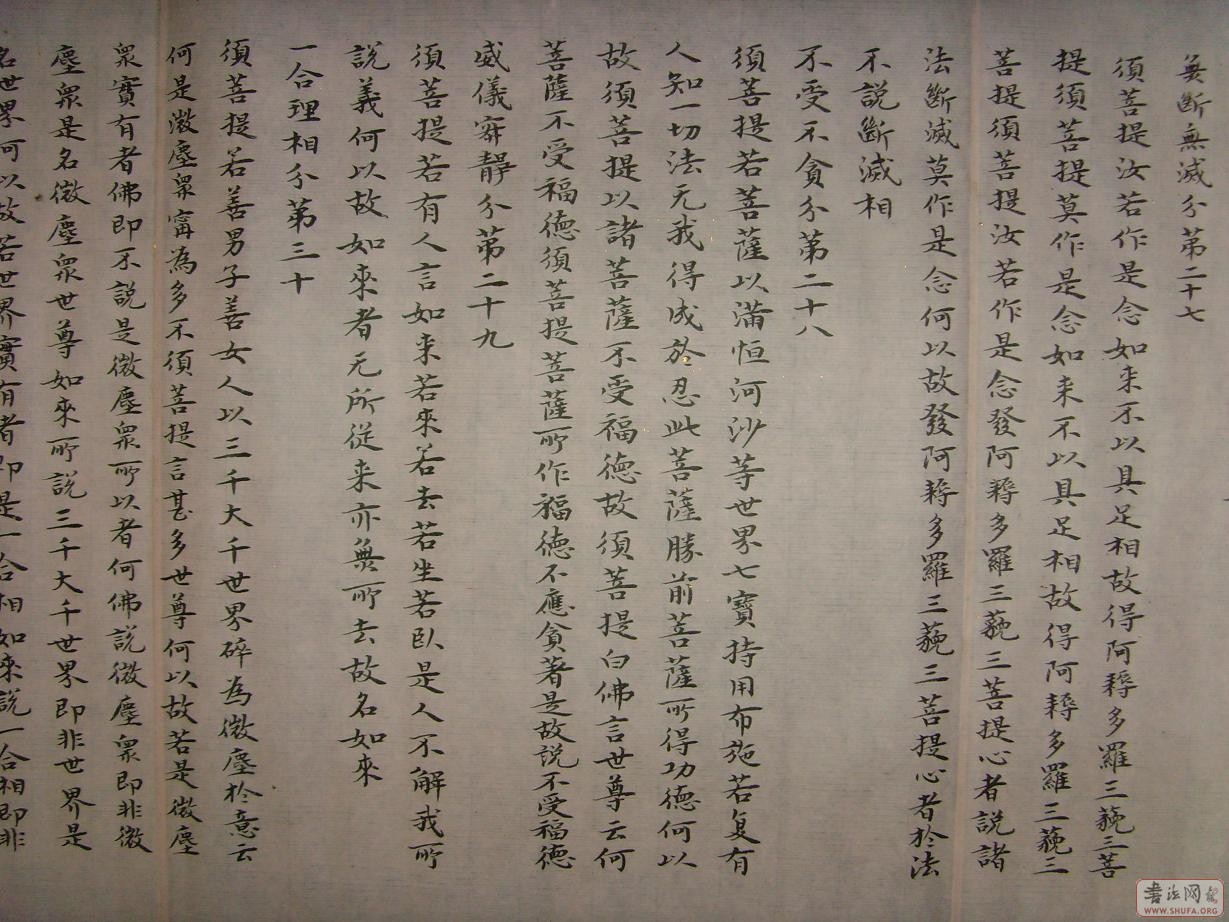 無斷無滅分第二十七
須菩提汝若作是念如来不以具足相故得阿耨多羅三藐三菩
提須菩提莫作是念如来不以具足相故得阿耨多羅三藐三
菩提須菩提汝若作是念發阿耨多羅三藐三菩提心者說諸
法斷滅莫作是念何以故發阿耨多羅三藐三菩提心者於法
不說斷滅相
不受不貪分第二十八
須菩提若菩薩以滿恒河沙等世界七寶持用布施若复有
人知一切法无我得成於忍此菩薩勝前菩薩所得功德何以
故須菩提以諸菩薩不受福德故須菩提白佛言世尊云何
菩薩不受福德須菩提菩薩所作福德不應貪著是故說不受福德
威儀寂靜分第二十九
須菩提若有人言如来若來若去若坐若臥是人不解我所
說義何以故如來者无所從来亦無所去故名如來
一合理相分第三十
須菩提若善男子善女人以三千大千世界碎為微塵於意云
何是微塵衆甯為多不須菩提言甚多世尊何以故若是微塵
衆實有者佛即不說是微塵衆所以者何佛說微塵衆即非微
塵衆是名微塵衆世尊如來所説三千大千世界即非世界是
名世界何以故若世界實有者即是一合相如來說一合相即非
書法网
WWW.SHUFA.ORG